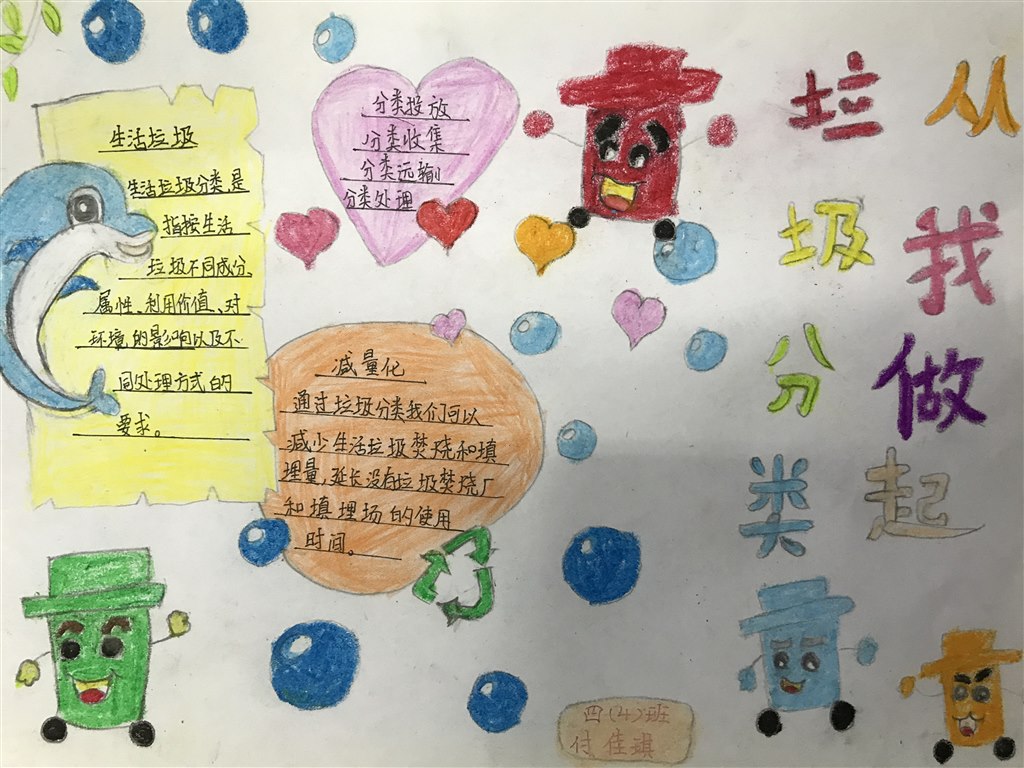 垃圾分类
从我做起
生活垃圾
生活垃圾分类是
指按生活
垃圾不同成分
属性、利用价值、对
环境的影响以及不
同处理方式的
要求。
分类投放
分类收集
分类远输
分类处理
减量化
通过垃圾分类我们可以
减少生活垃圾焚烧和填
埋量,延长没有垃圾焚烧厂
和填埋场的使用
时间。
四(4)班
付佳琪